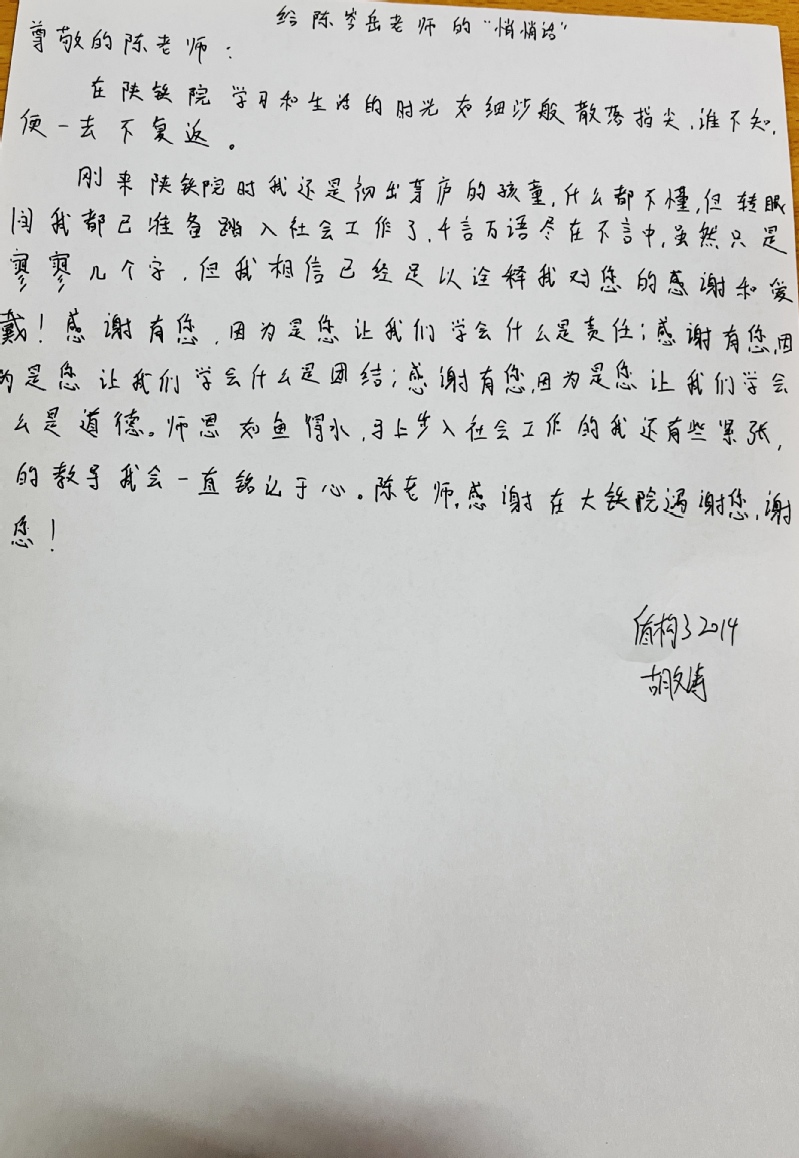 给陈岑岳老师的“悄悄话”
尊敬的陈老师：
在陕铁院学习和生活的时光如细沙般散落指尖，谁不知，
便一去不复返。
刚来陕铁院时我还是初出茅庐的孩童，什么都不懂，但转眼
间我都已准备踏入社会工作了，千言万语尽在不言中，虽然只是
寥寥几个字，但我相信已经足以诠释我对您的感谢和爱
戴！感谢有您，因为是您让我们学会什么是责任；感谢有您，因
为是您让我们学会什么是团结；感谢有您，因为是您让我们学会
么是道德。师恩如鱼得水，马上步入社会工作的我还有些紧张，
的教导我会一直铭记于心。陈老师，感谢在大铁院遇谢您，谢
您！
盾构32014
胡文涛